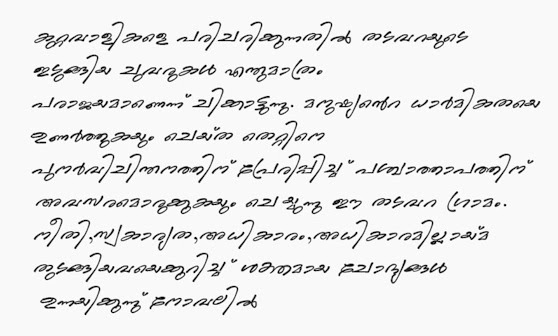 കുറ്റവാളികളെ പരിചരിക്കുന്നതിൽ തടവറയുടെ
ഇടുങ്ങിയ ചുവരുകൾ എന്തുമാത്രം
പരാജയമാണെന്ന് ചിക്കാട്ടുന്നു. മനുഷ്യന്റെ ധാർമികതയെ
ഉണർത്തുകയും ചെയ്ത തെറ്റിനെ
പുനർവിചിന്തനത്തിന് പ്രേരിപ്പിച്ച് പശ്ചാത്താപത്തിന്
അവസരമൊരുക്കുകയും ചെയ്യുന്നു ഈ തടവറ ഗ്രാമം.
നീതി,സ്വകാര്യത,അധികാരം,അധികാരമില്ലായ്മ
തുടങ്ങിയവയെക്കുറിച്ച് ശക്തമായ ചോദ്യങ്ങൾ
ഉന്നയിക്കുന്നു് നോവലിൽ